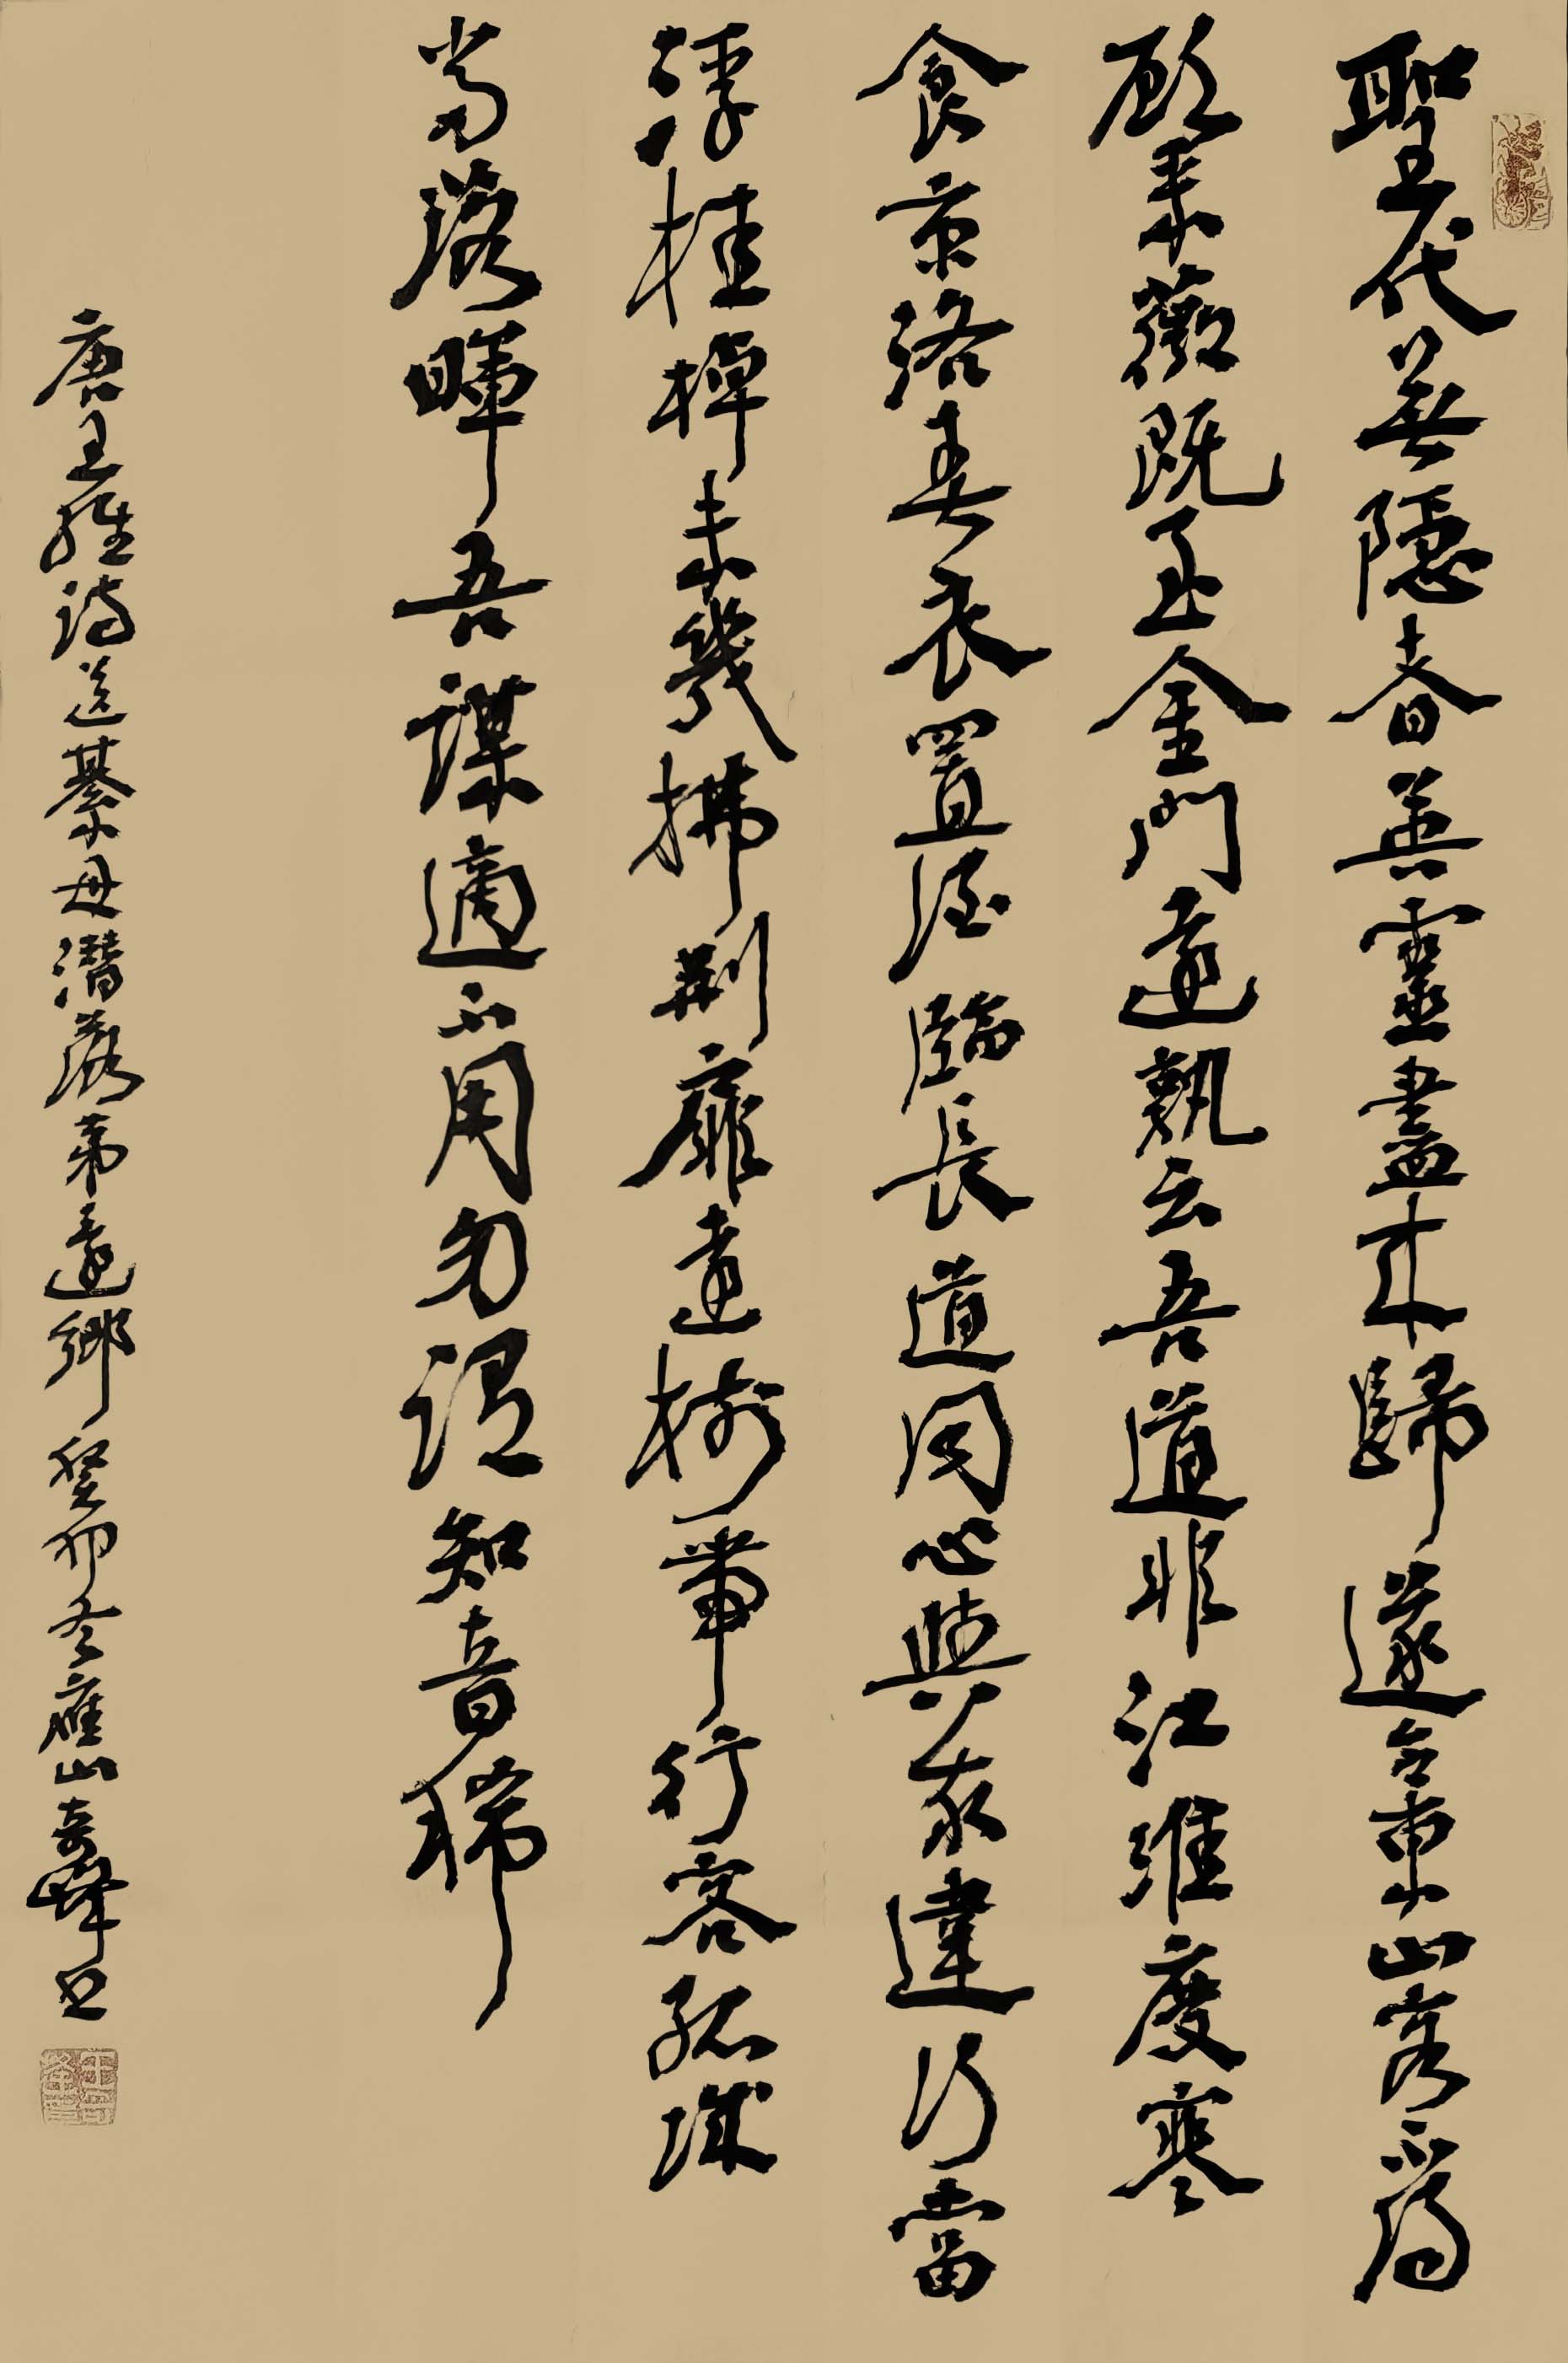 聖代無隱者英靈盡來歸遂令東山客不得
顧采薇既至金門遠孰云吾道非江淮度寒
食京洛春衣置酒臨長道同心與我違行當
浮桂棹未幾拂荊扉遠樹帶行客孤城
當落暉吾謀適不用勿謂知音稀
唐王維詩送綦毋潛落第還鄉癸卯冬應山奇峰書